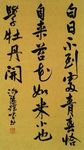 白日不到處青春恰
自來苔花如米小也
學牡丹開